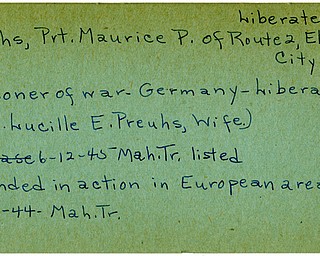 Liberate
hs, Prt. Maurice P. of Route 2, El
City
oner of war - Germany - Libera
. Lucille E. Preuhs, Wife.)
ease 6-12-45 Mah. Tr. listed
nded in action in European area
-44 - Mah. Tr.